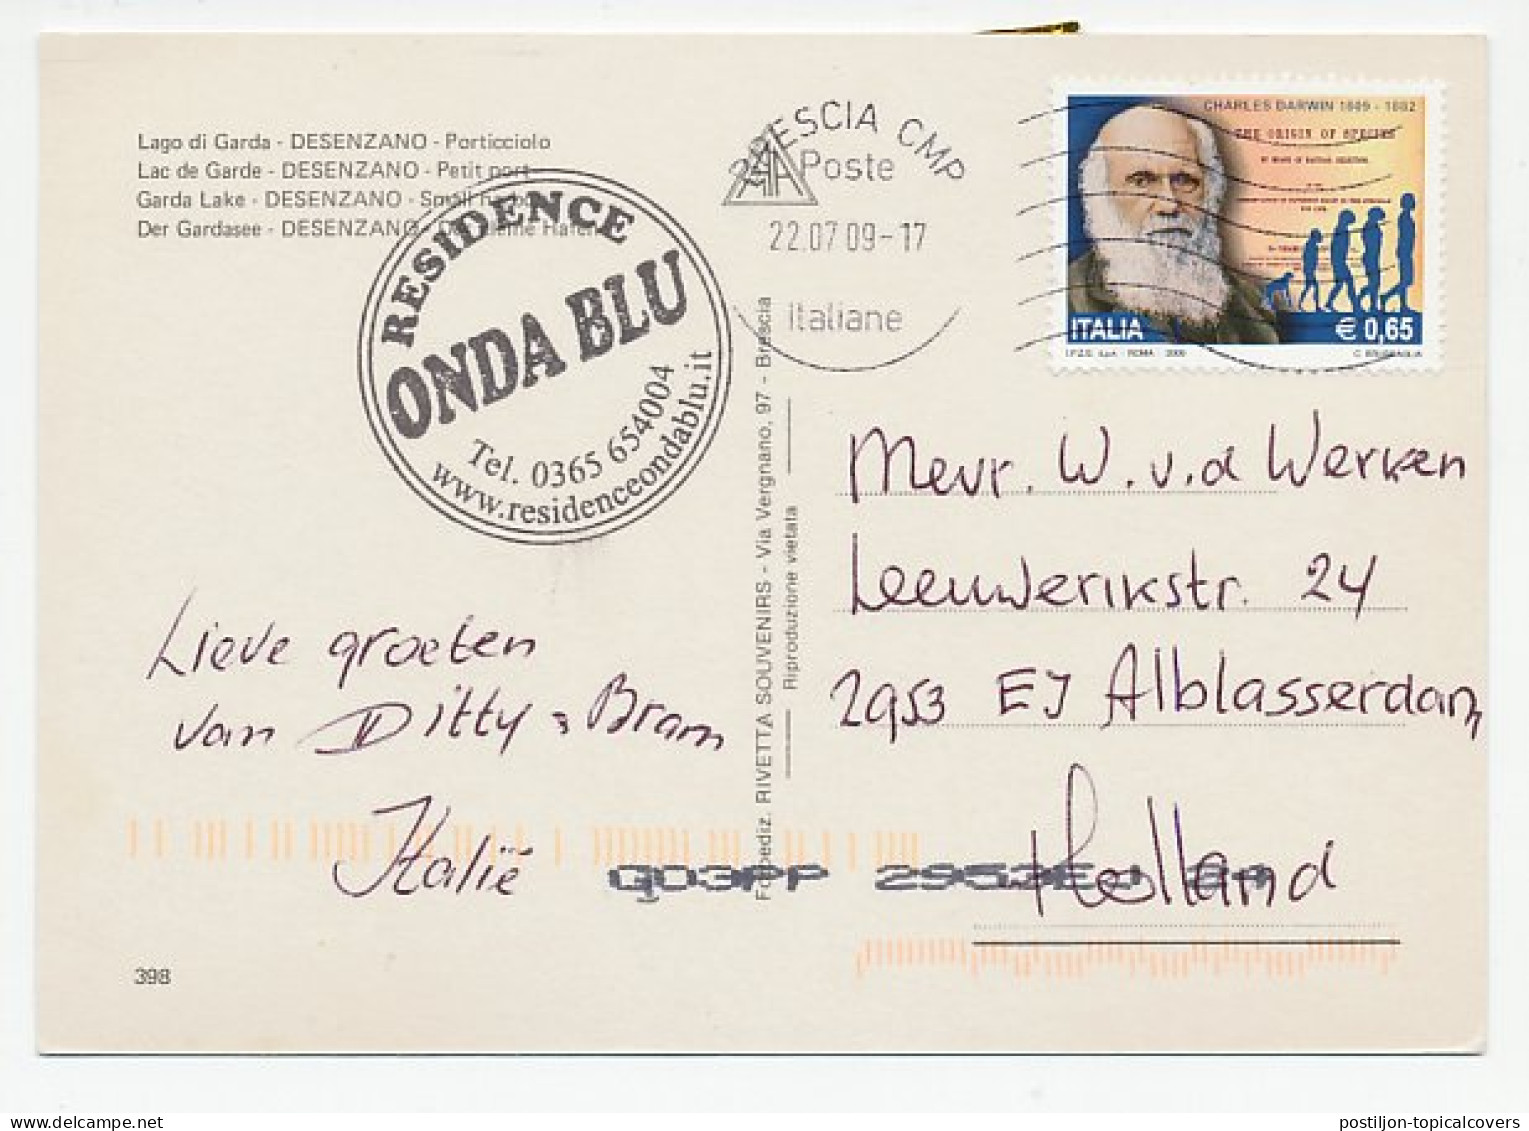 Lago di Garda - DESENZANO - Porticciolo
Lac de Garde - DESENZANO - Petit port
Garda Lake - DESENZANO - Small
Der Gardasee - DESENZANO -
RESIDENCE
ONDA BLU
Tel. 0365 654004
www.residenceondablu.it
BRESCIA CMP
Poste
22.07 09-17
italiane
CHARLES DARWIN 1809 - 1882
THE ORIGIN OF SPECIES
ITALIA
€ 0,65
I.P.Z.S. S.p.A. - ROMA 2009
Mevr. W. v.d Werken
Leeuwerikstr. 24
2953 EJ Alblasserdam
Holland
Lieve groeten
van Ditty & Bram
Italië
Fotoediz. RIVETTA SOUVENIRS - Via Vergnano, 97 - Brescia
Riproduzione vietata
QO3PP 2953EJ 24
398
postiljon-topicalcovers